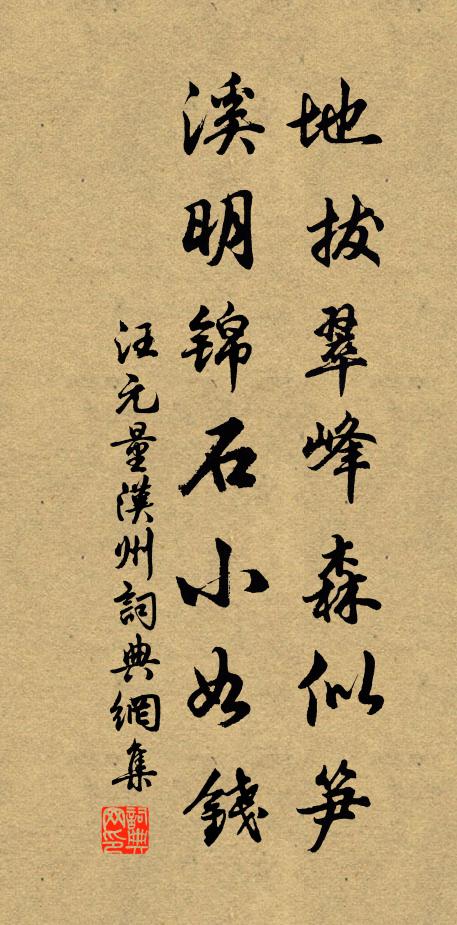 地拔翠峰森似笋
溪明錦石小如錢
汪元量漢州詞典網集
詞典网印